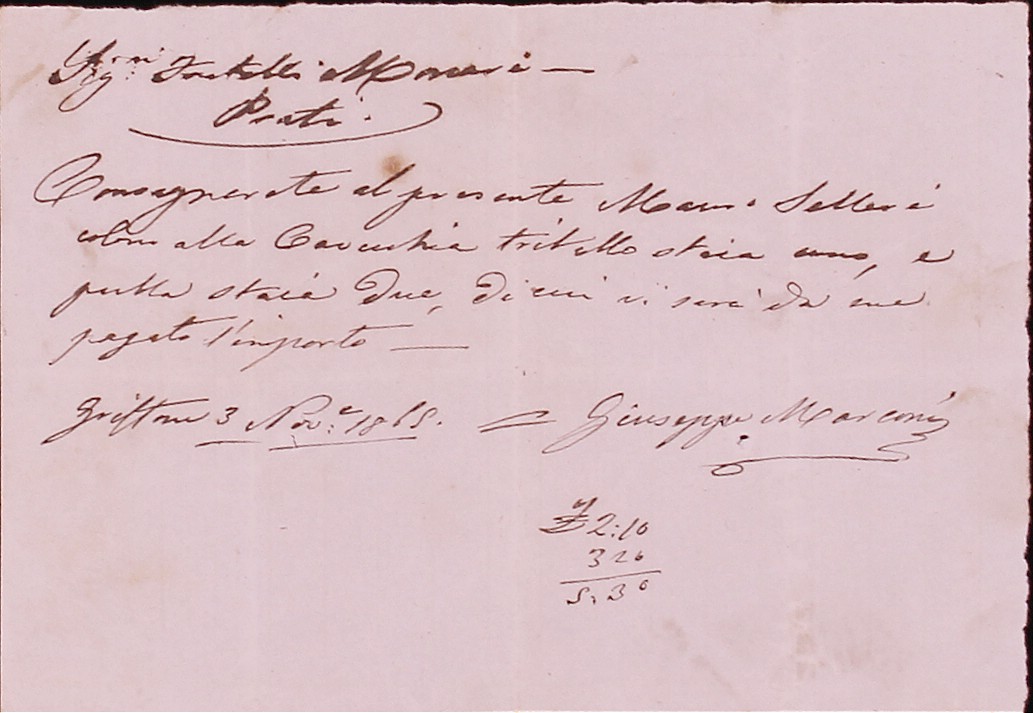 Sig.ri Fratelli Monari —
Prati.
Consegnerete al presente Mauro Selleri
colono alla Cavecchia tritello staia uno, e
pulla staia due, di cui vi sarà da me
pagato l'importo —
Griffone 3 Nov.e 1865. = Giuseppe Marconi
£ 2:10
3 20
5:30